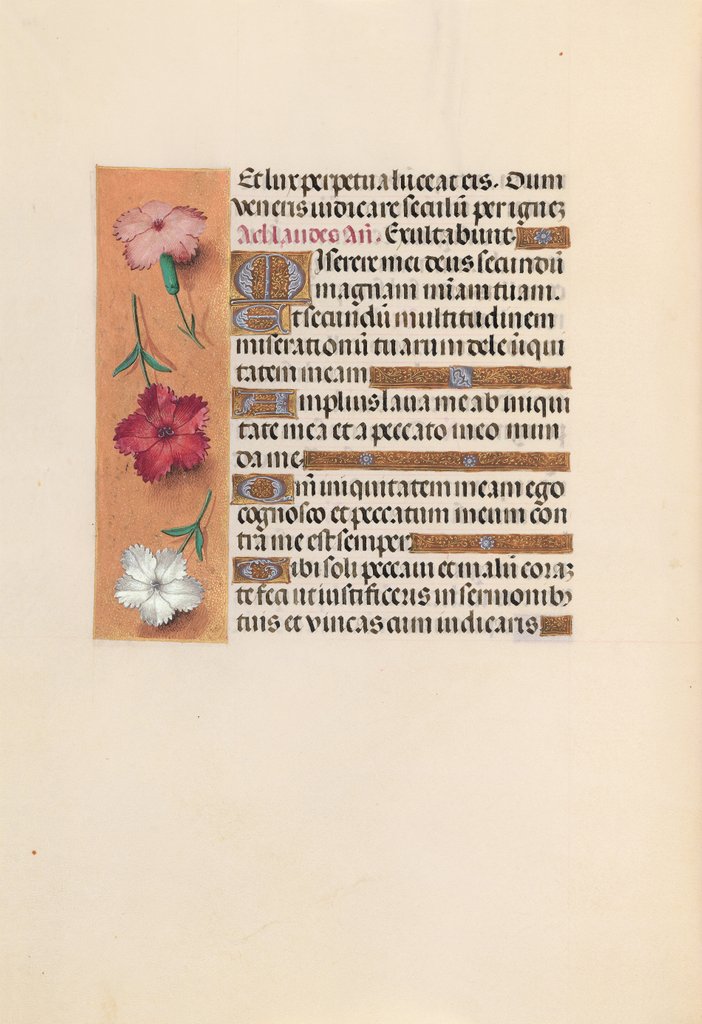 Et lux perpetua luceat eis. Dum
veneris iudicare seculū per ignez
Ad laudes An̄. Exultabunt.
Miserere mei deus secundū
magnam m̄iam tuam.
Et secundū multitudinem
miserationū tuarum dele iniqui
tatem meam
Amplius laua me ab iniqui
tate mea et a peccato meo mun
da me.
Qm̄ iniquitatem meam ego
cognosco et peccatum meum con
tra me est semper.
Tibi soli peccaui et malū coraz
te feci ut iustificeris in sermonibꝰ
tuis et vincas cum iudicaris